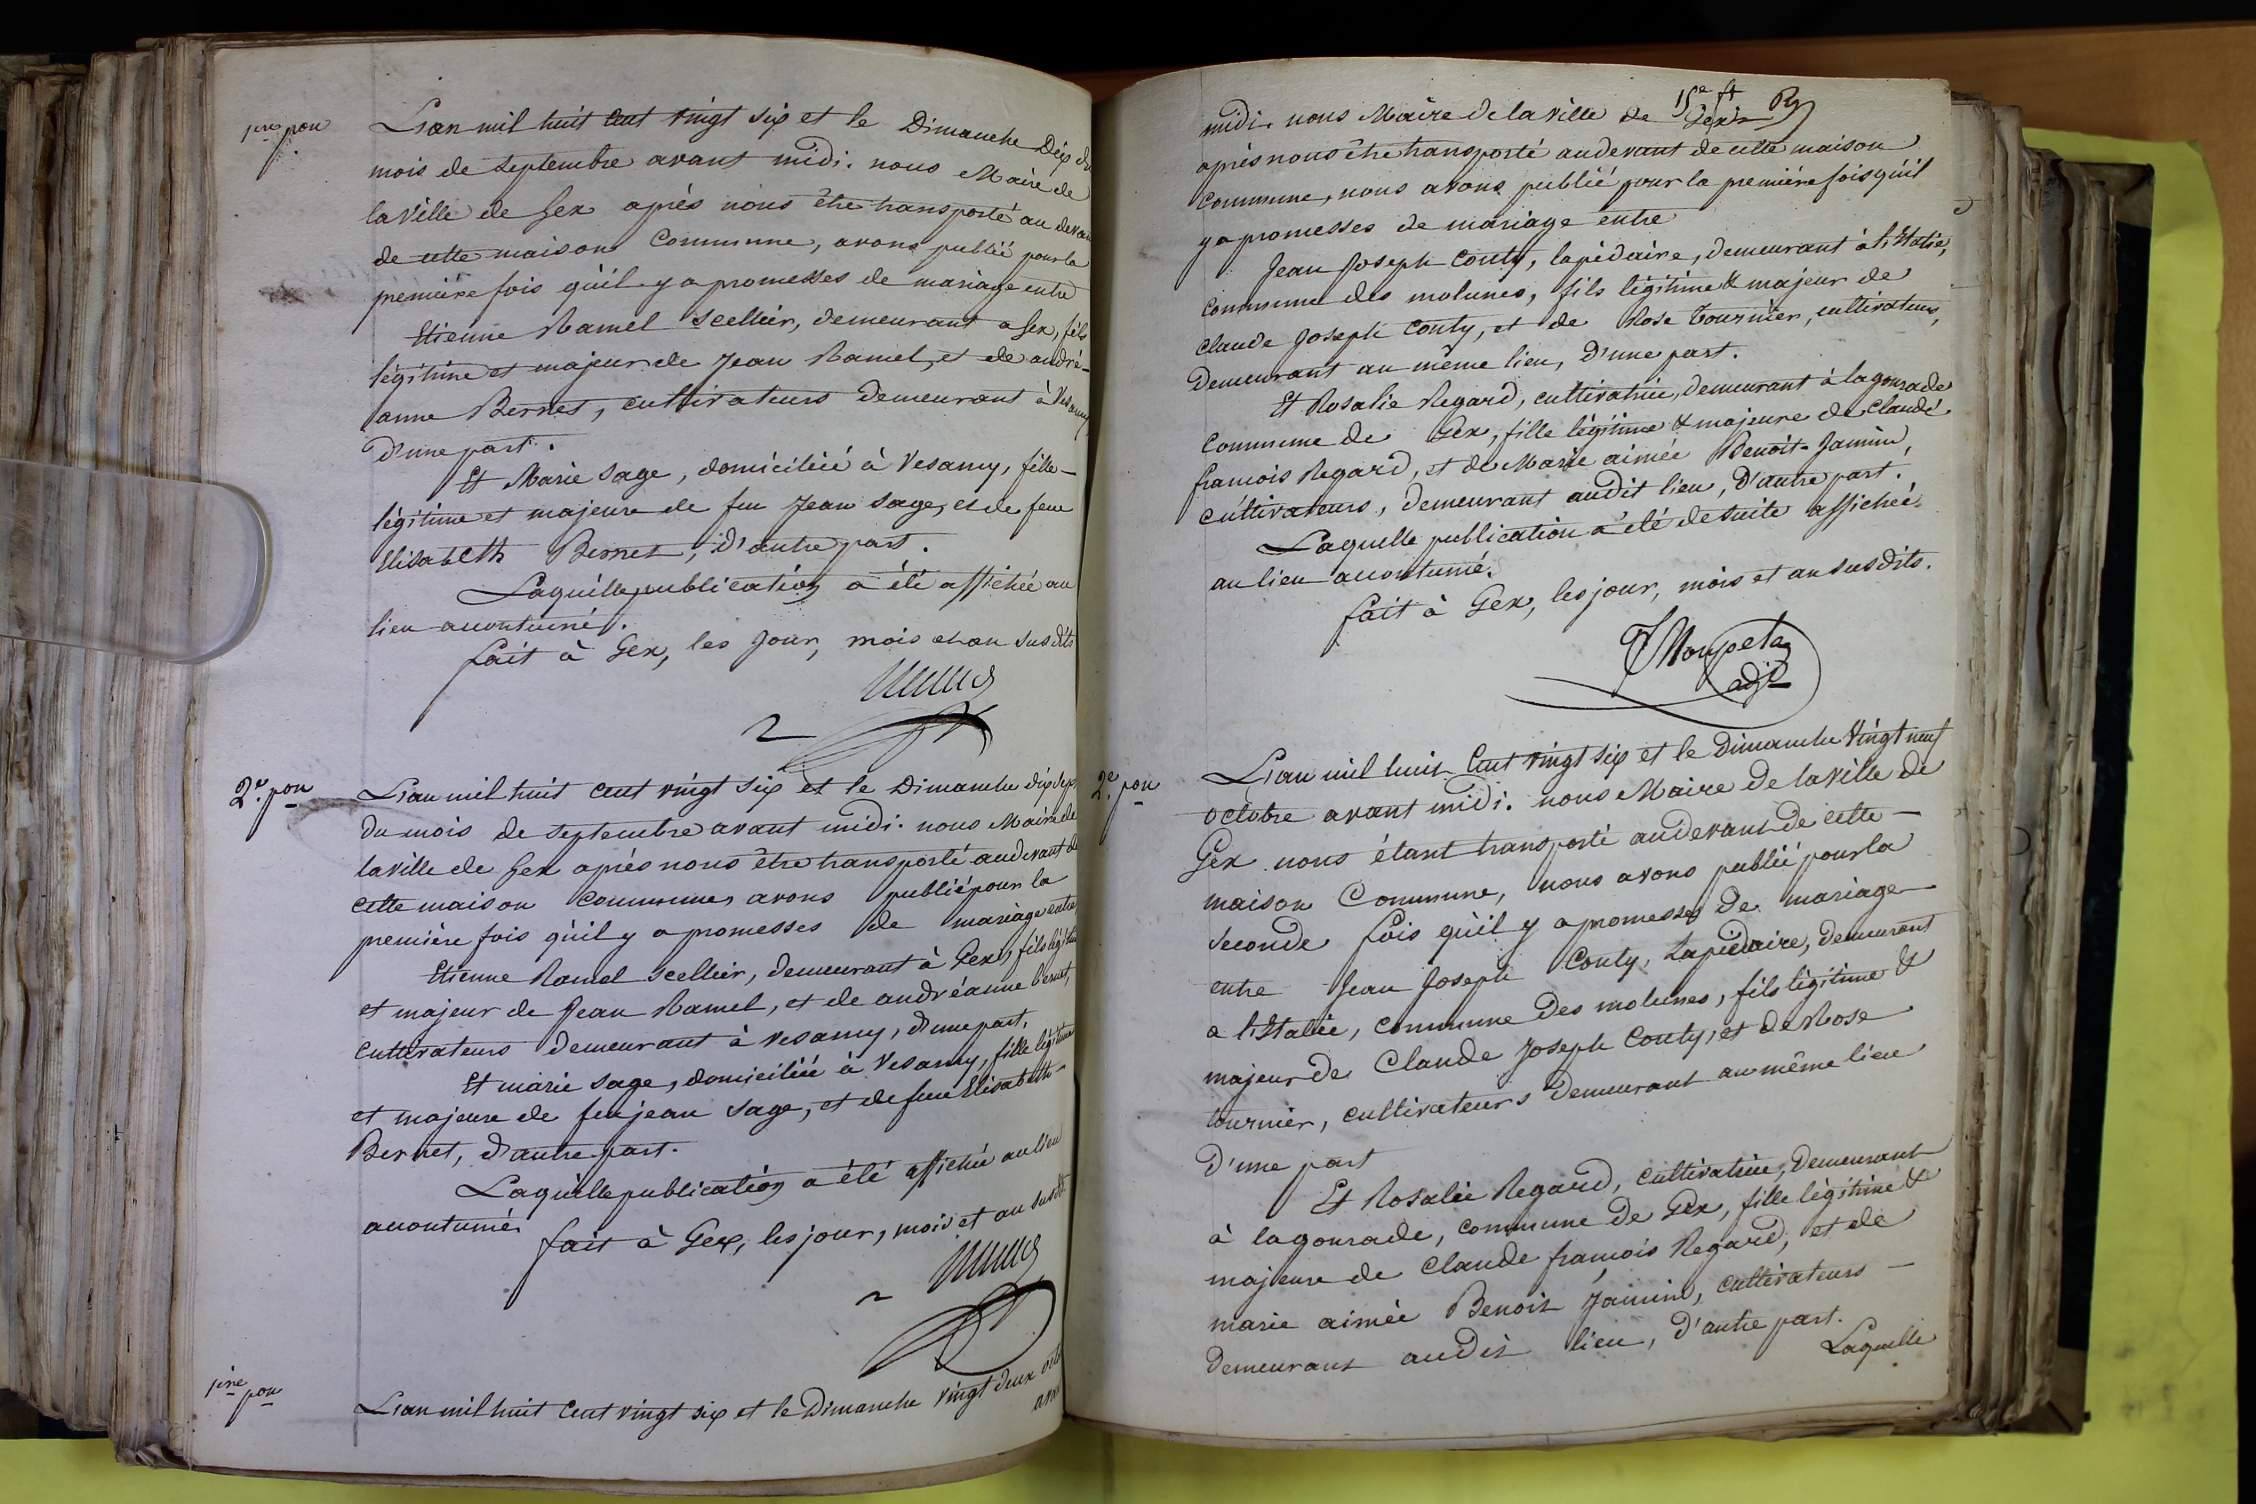 1ere pon
L'an mil huit cent vingt six et le Dimanche Dix du
mois de septembre avant midi. nous Maire de
la ville de Gex après nous être transporté au devant
de cette maison Commune, avons publié pour la
première fois qu'il y a promesses de mariage entre
Etienne Ramel Scellier, demeurant a Gex, fils
légitime et majeur de Jean Ramel, et de andré-
anne Bernet, cultivateurs demeurant à Vesancy,
d'une part.
Et Marie Sage, domiciliée à Vesancy, fille
légitime et majeure de feu Jean Sage, et de feue
Elisabeth Bernet, d'autre part.
Laquelle publication a été affichée au
lieu accoutumé.
fait à Gex, les Jour, mois et an susdits
2e. pon
L'an mil huit cent vingt six et le Dimanche dix sept
Du mois de septembre avant midi. nous Maire de
la ville de Gex après nous être transporté au devant de
cette maison commune, avons publié pour la
première fois qu'il y a promesses de mariage entre
Etienne Ramel Scellier, demeurant à Gex, fils légitime
et majeur de Jean Ramel, et de andréanne bernet,
cultivateurs demeurant à Vesancy, d'une part.
Et marie sage, domiciliée à Vesancy, fille légitime
et majeure de feu jean Sage, et de feue Elisabeth
Bernet, d'autre part.
Laquelle publication a été affichée au lieu
accoutumé.
fait à Gex, les jour, mois et an susdits
1ere pon
L'an mil huit cent vingt six et le Dimanche vingt deux octobre
avant
15e ft
midi. nous Maire de la ville de Gex
après nous être transporté au devant de cette maison
Commune, nous avons publié pour la première fois qu'il
y a promesses de mariage entre
Jean Joseph Conty, lapidaire, demeurant à l'Italie,
commune des molunes, fils légitime & majeur de
claude Joseph Conty, et de Rose Tournier, cultivateurs,
Demeurant au même lieu, D'une part.
Et Rosalie Regard, cultivatrice, demeurant à la gourade
commune de Gex, fille légitime & majeure de Claude
francois Regard, et de Marie aimée Benoit-Jamin,
cultivateurs, demeurant audit lieu, D'autre part.
Laquelle publication a été de suite affichée
au lieu accoutumé.
fait à Gex, les jour, mois et an susdits.
adjt
2e. pon
L'an mil huit Cent vingt six et le Dimanche Vingt neuf
octobre avant midi. nous Maire de la ville de
Gex nous étant transporté au devant de cette
maison Commune, nous avons publié pour la
seconde fois qu'il y a promesses de mariage
entre Jean Joseph Conty, Lapidaire, demeurant
a l'Italie, commune Des molunes, fils légitime &
majeur de Claude Joseph Conty, et de Rose
tournier, cultivateurs Demeurant au même lieu
D'une part
Et Rosalie Regard, cultivatrice, Demeurant
à la gourade, commune de Gex, fille légitime &
majeure de Claude françois Regard, et de
marie aimée Benoit Jamin, cultivateurs
Demeurant audit lieu, D'autre part.
Laquelle